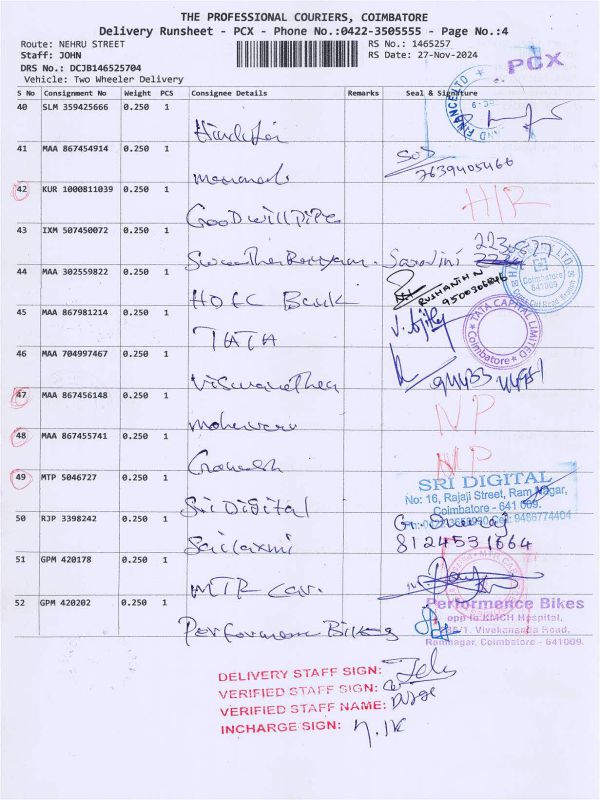 THE PROFESSIONAL COURIERS, COIMBATORE
Delivery Runsheet - PCX - Phone No.:0422-3505555 - Page No.:4
Route: NEHRU STREET
RS No.: 1465257
Staff: JOHN
RS Date: 27-Nov-2024
DRS No.: DCJB146525704
Vehicle: Two Wheeler Delivery
PCX
S No Consignment No Weight PCS Consignee Details Remarks Seal & Signature
40 SLM 359425666 0.250 1
AND FINANCE LTD
41 MAA 867454914 0.250 1
7639405466
42 KUR 1000811039 0.250 1
Goodwill Pipe
H/R
43 IXM 507450072 0.250 1
Sarojini
44 MAA 302559822 0.250 1
HDFC Bank
RUSHANTH N
9500306846
Coimbatore
641009
45 MAA 867981214 0.250 1
TATA
TATA CAPITAL LIMITED
Coimbatore
46 MAA 704997467 0.250 1
47 MAA 867456148 0.250 1
NP
48 MAA 867455741 0.250 1
Ganesh
NP
49 MTP 5046727 0.250 1
Sri Digital
SRI DIGITAL
No: 16, Rajaji Street, Ram Nagar,
Coimbatore - 641 009.
Cell: 9486774404
50 RJP 3398242 0.250 1
Sailaxmi
8124531664
51 GPM 420178 0.250 1
MTR Car.
52 GPM 420202 0.250 1
Performance Bikes
Performance Bikes
opp to KMCH Hospital,
Vivekananda Road,
Ramnagar, Coimbatore - 641009.
DELIVERY STAFF SIGN:
VERIFIED STAFF SIGN:
VERIFIED STAFF NAME:
INCHARGE SIGN: